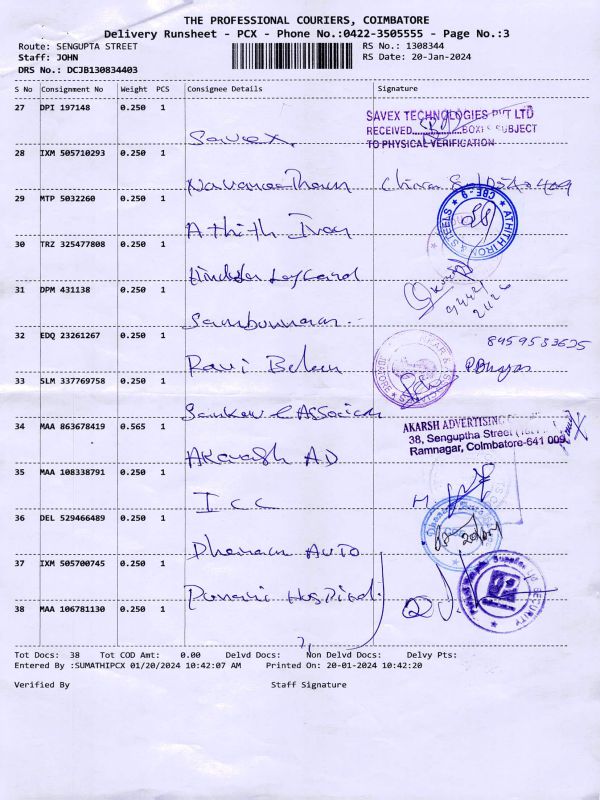 THE PROFESSIONAL COURIERS, COIMBATORE
Delivery Runsheet - PCX - Phone No.:0422-3505555 - Page No.:3
Route: SENGUPTA STREET RS No.: 1308344
Staff: JOHN RS Date: 20-Jan-2024
DRS No.: DCJB130834403
S No Consignment No Weight PCS Consignee Details Signature
27 DPI 197148 0.250 1 Savex
SAVEX TECHNOLOGIES PVT LTD
RECEIVED BOXES SUBJECT
TO PHYSICAL VERIFICATION
28 IXM 505710293 0.250 1
29 MTP 5032260 0.250 1 Athith Iron
ATHITH IRON & STEELS CBE-9
30 TRZ 325477808 0.250 1
31 DPM 431138 0.250 1
94421
32 EDQ 23261267 0.250 1 Ravi
8459533625
33 SLM 337769758 0.250 1
34 MAA 863678419 0.565 1 Akarash AD
AKARSH ADVERTISING
38, Senguptha Street
Ramnagar, Coimbatore-641 009
35 MAA 108338791 0.250 1 ICC
36 DEL 529466489 0.250 1 Dhanam Auto
37 IXM 505700745 0.250 1 Hospital
38 MAA 106781130 0.250 1
SECURITY
Tot Docs: 38 Tot COD Amt: 0.00 Delvd Docs: Non Delvd Docs: Delvy Pts:
Entered By :SUMATHIPCX 01/20/2024 10:42:07 AM Printed On: 20-01-2024 10:42:20
Verified By Staff Signature